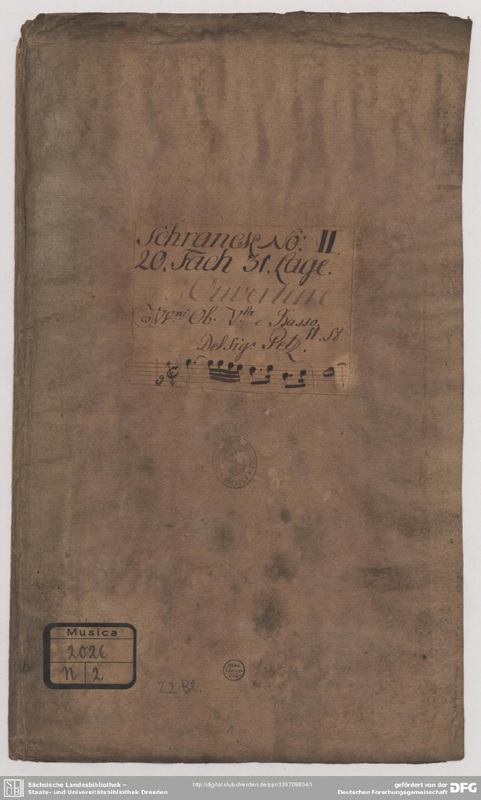 Schranck No: II.
20. Fach 31. Lage.
Ouverture
co VVni Ob. Vle e Basso.
Del Sigr Petz.
Musica
2026
N 2
22 Bl.
Sächsische Landesbibliothek –
Staats- und Universitätsbibliothek Dresden
http://digital.slub-dresden.de/ppn339709804/1
gefördert von der
Deutschen Forschungsgemeinschaft
DFG